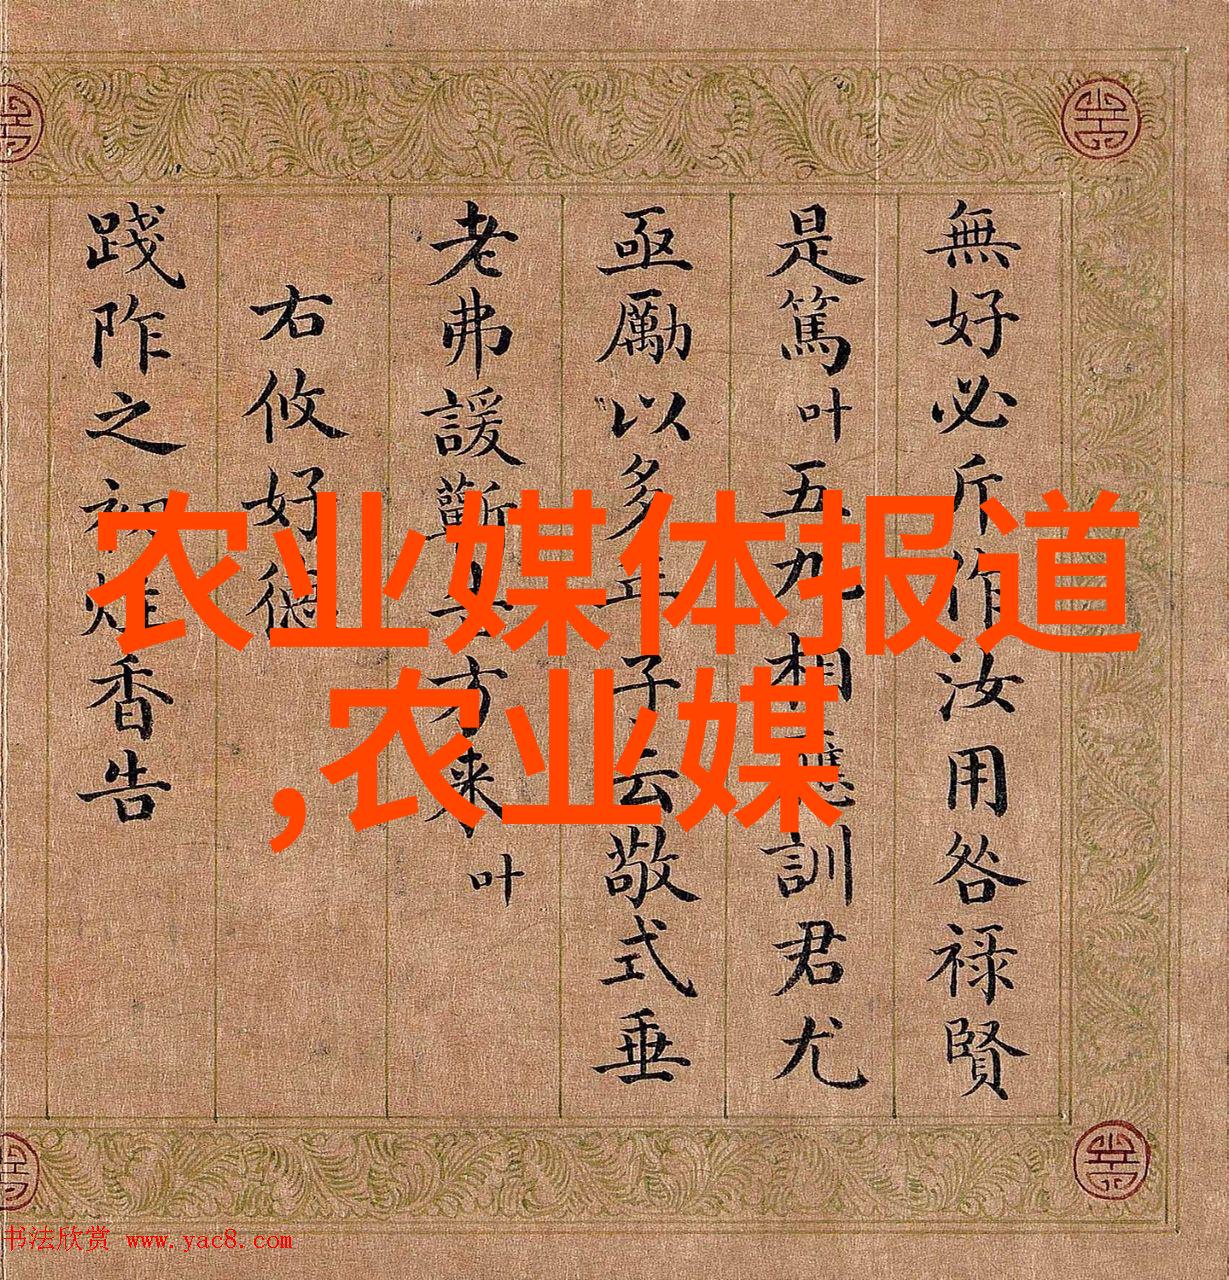 無好必斤作汝用咎祿賢
是篤叶五九相應訓君尤
亟勵以多年子云敬式垂
老弗諼方來叶
右攸好德
踐阼之初炷香告
农业媒体报道
,农业媒
书法欣赏 www.yac8.com